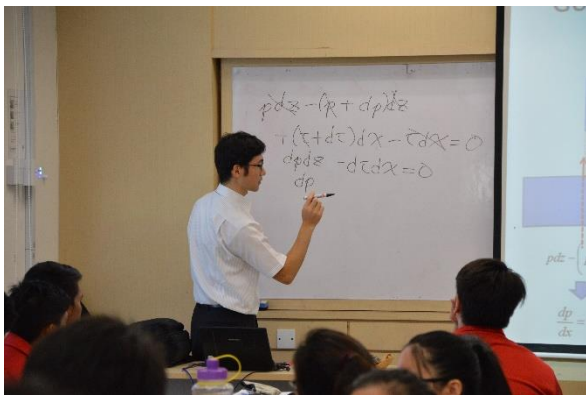 pdz - (p + dp)dz
+(τ+dτ)dx - τdx = 0
dpdz - dτdx = 0
dp
pdz - (
dp/dx =